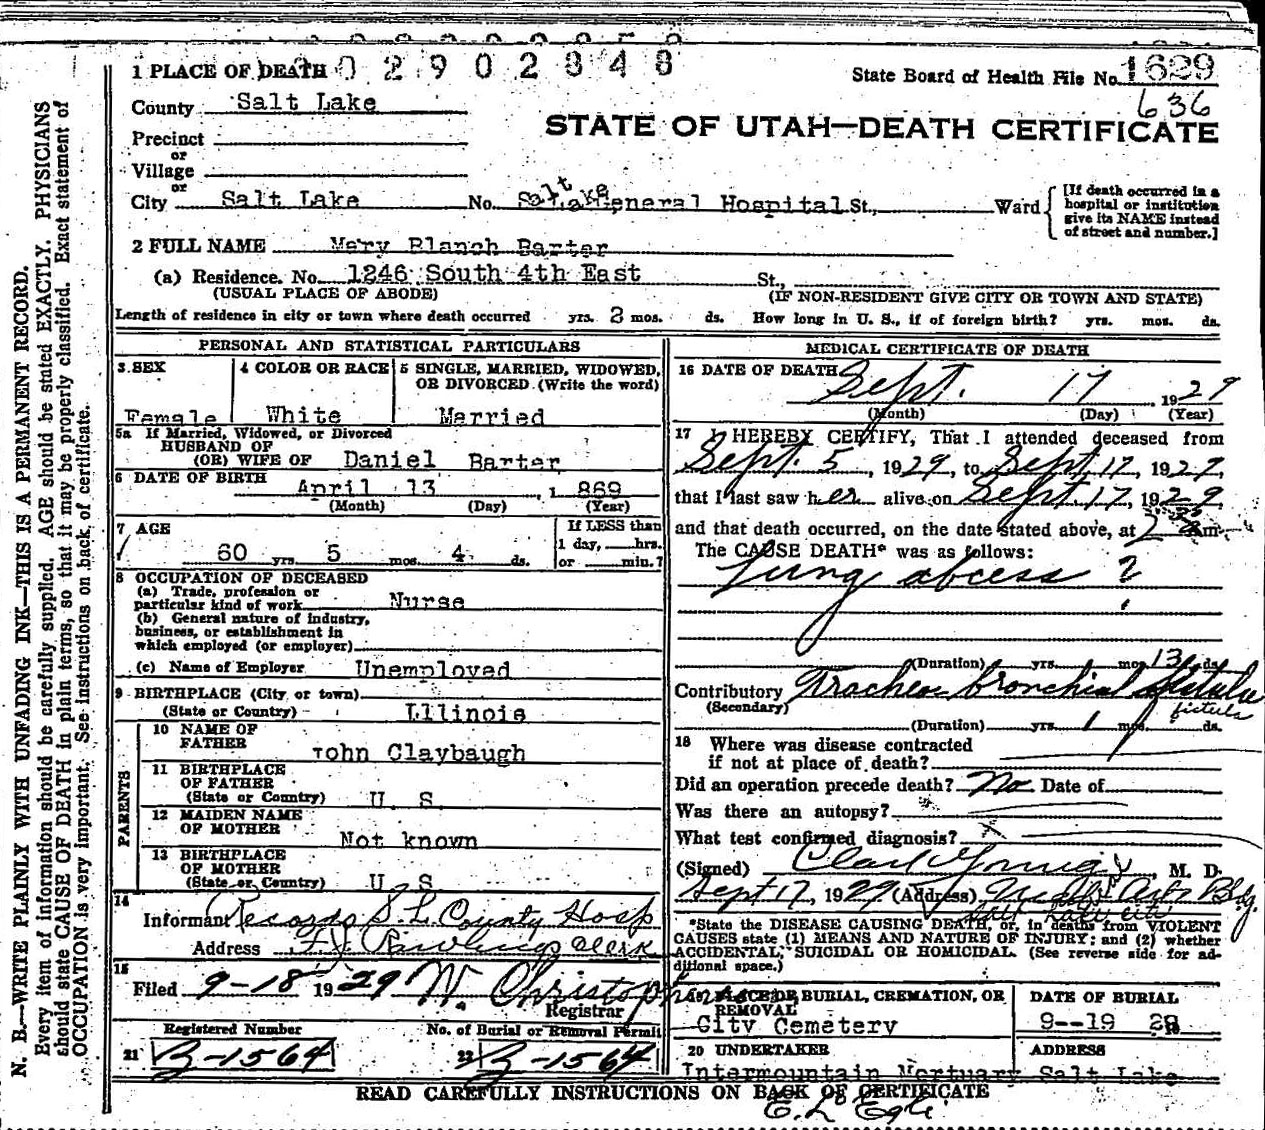 1 PLACE OF DEATH 0 2 9 0 2 3 4 8
State Board of Health File No. 1629
636
County Salt Lake
STATE OF UTAH—DEATH CERTIFICATE
Precinct
or
Village
or
City Salt Lake No. Salt Lake General Hospital St., Ward
[If death occurred in a hospital or institution give its NAME instead of street and number.]
2 FULL NAME Mary Blanch Barter
(a) Residence. No. 1246 South 4th East St.,
(USUAL PLACE OF ABODE) (IF NON-RESIDENT GIVE CITY OR TOWN AND STATE)
Length of residence in city or town where death occurred yrs. 2 mos. ds. How long in U. S., if of foreign birth? yrs. mos. ds.
PERSONAL AND STATISTICAL PARTICULARS
3 SEX 4 COLOR OR RACE 5 SINGLE, MARRIED, WIDOWED,
OR DIVORCED (Write the word)
Female White Married
5a If Married, Widowed, or Divorced
HUSBAND OF
(OR) WIFE OF Daniel Barter
6 DATE OF BIRTH April 13, 1869
(Month) (Day) (Year)
7 AGE If LESS than
1 day, hrs.
60 yrs. 5 mos. 4 ds. or min.?
8 OCCUPATION OF DECEASED
(a) Trade, profession or
particular kind of work Nurse
(b) General nature of industry,
business, or establishment in
which employed (or employer)
(c) Name of Employer Unemployed
9 BIRTHPLACE (City or town)
(State or Country) Illinois
PARENTS
10 NAME OF
FATHER John Claybaugh
11 BIRTHPLACE
OF FATHER
(State or Country) U. S.
12 MAIDEN NAME
OF MOTHER Not known
13 BIRTHPLACE
OF MOTHER
(State or Country) U S
14
Informant Records S. L. County Hosp
Address Rawlings Clerk
15
Filed 9-18 1929 W. Christopherson
Registrar
Registered Number No. of Burial or Removal Permit
21 B-1564 22 B-1564
MEDICAL CERTIFICATE OF DEATH
16 DATE OF DEATH Sept. 17, 1929
(Month) (Day) (Year)
17 I HEREBY CERTIFY, That I attended deceased from
Sept. 5, 1929, to Sept 17, 1929,
that I last saw her alive on Sept 17, 1929
and that death occurred, on the date stated above, at 2 am.
The CAUSE DEATH* was as follows:
Lung abcess ?
(Duration) yrs. mos. 13 ds.
Contributory Tracheo bronchial fistula
(Secondary) fistula
(Duration) yrs. 1 mos. ds.
18 Where was disease contracted
if not at place of death?
Did an operation precede death? No Date of
Was there an autopsy?
What test confirmed diagnosis?
(Signed) Clark Young, M. D.
Sept 17, 1929 (Address) Arts Bldg.
Salt Lake City
*State the DISEASE CAUSING DEATH, or, in deaths from VIOLENT
CAUSES state (1) MEANS AND NATURE OF INJURY; and (2) whether
ACCIDENTAL, SUICIDAL OR HOMICIDAL. (See reverse side for ad-
ditional space.)
19 PLACE OF BURIAL, CREMATION, OR DATE OF BURIAL
REMOVAL
City Cemetery 9--19 29
20 UNDERTAKER ADDRESS
Intermountain Mortuary Salt Lake
READ CAREFULLY INSTRUCTIONS ON BACK OF CERTIFICATE
E. L. Egli
N. B.—WRITE PLAINLY WITH UNFADING INK—THIS IS A PERMANENT RECORD.
Every item of information should be carefully supplied. AGE should be stated EXACTLY. PHYSICIANS
should state CAUSE OF DEATH in plain terms, so that it may be properly classified. Exact statement of
OCCUPATION is very important. See instructions on back of certificate.